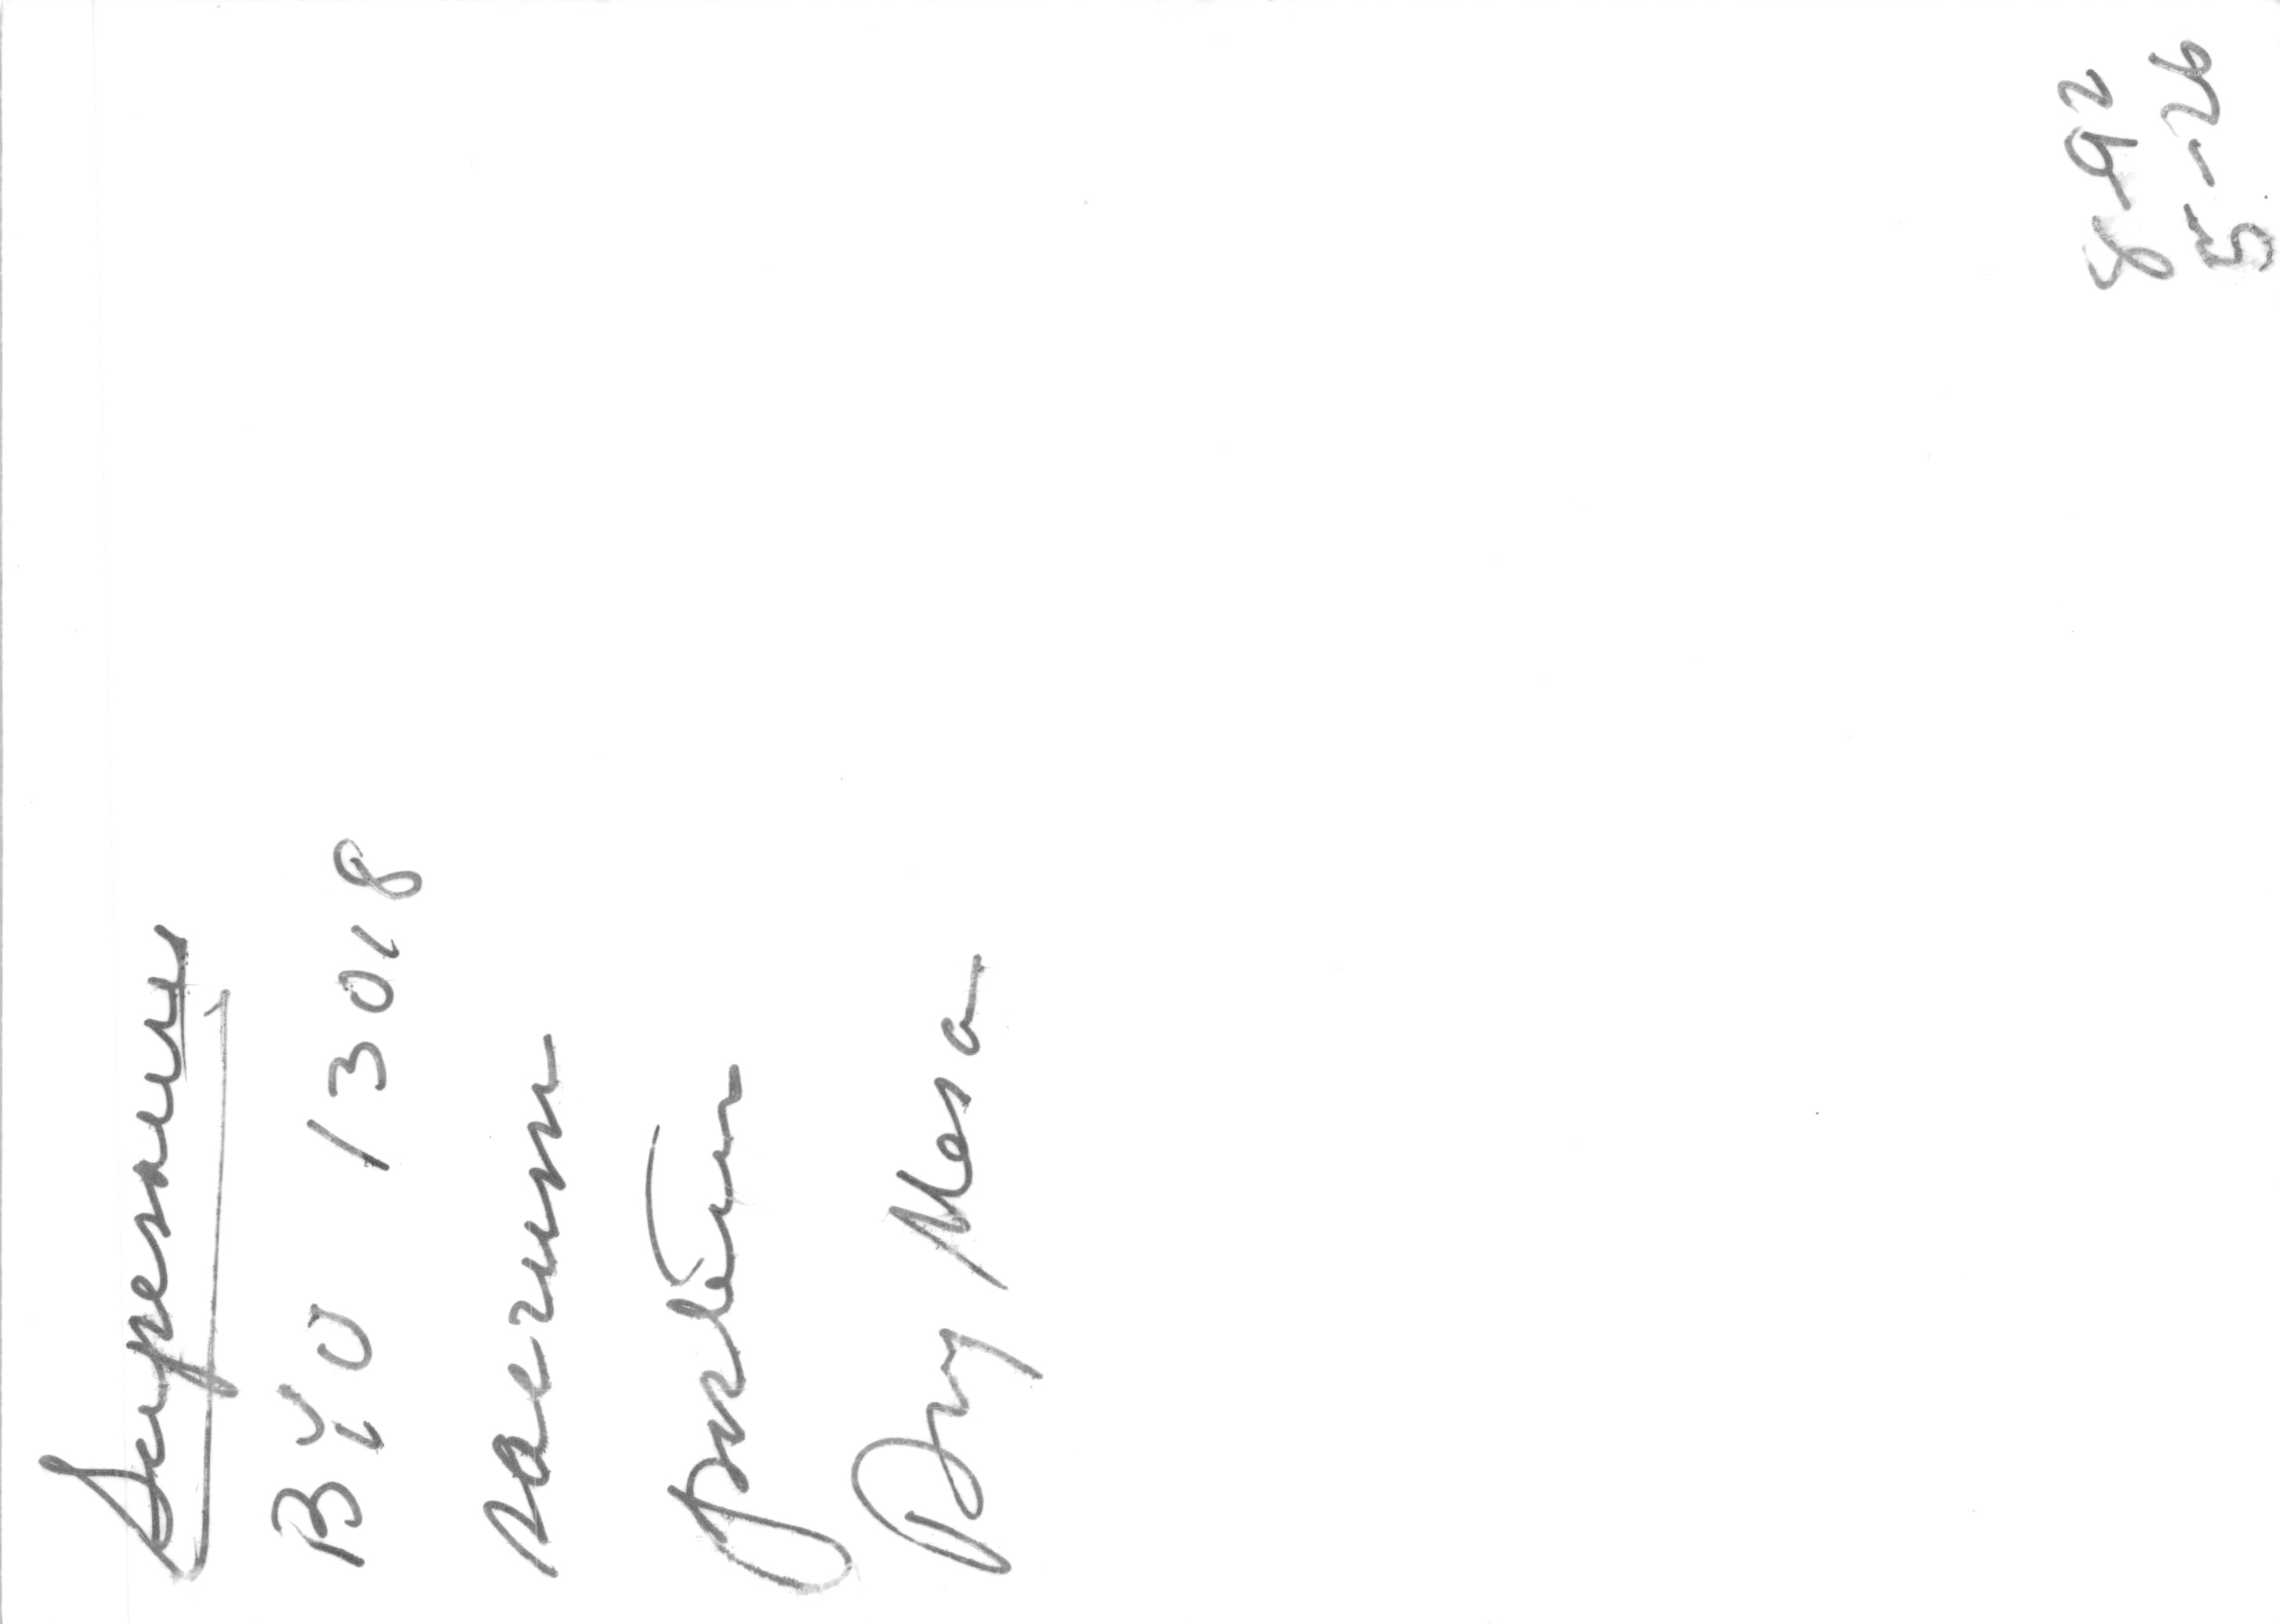 Supersaurus
BYU 13018
sacrum
posterior
Dry Mesa
8-92
5-26